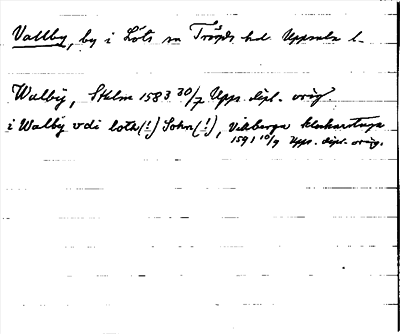 Vallby, by i Löts sn Trögds hd Uppsala l.
Walbÿ, Sthlm 1583 30/7 Upps. dipl. orig.
i Walbÿ vdi loth(!) Sokn(!), Vekberga
1591 10/9 Upps. dipl. orig.